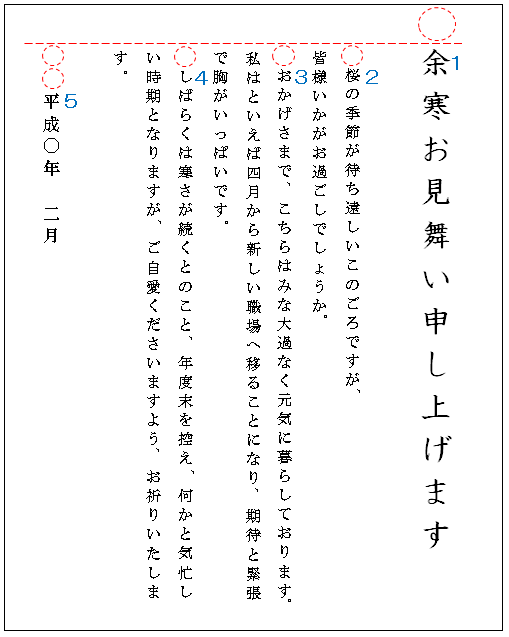 余寒お見舞い申し上げます
1
桜の季節が待ち遠しいこのごろですが、
2
皆様いかがお過ごしでしょうか。
おかげさまで、こちらはみな大過なく元気に暮らしております。
3
私はといえば四月から新しい職場へ移ることになり、期待と緊張
で胸がいっぱいです。
しばらくは寒さが続くとのこと、年度末を控え、何かと気忙し
4
い時期となりますが、ご自愛くださいますよう、お祈りいたしま
す。
平成〇年 二月
5